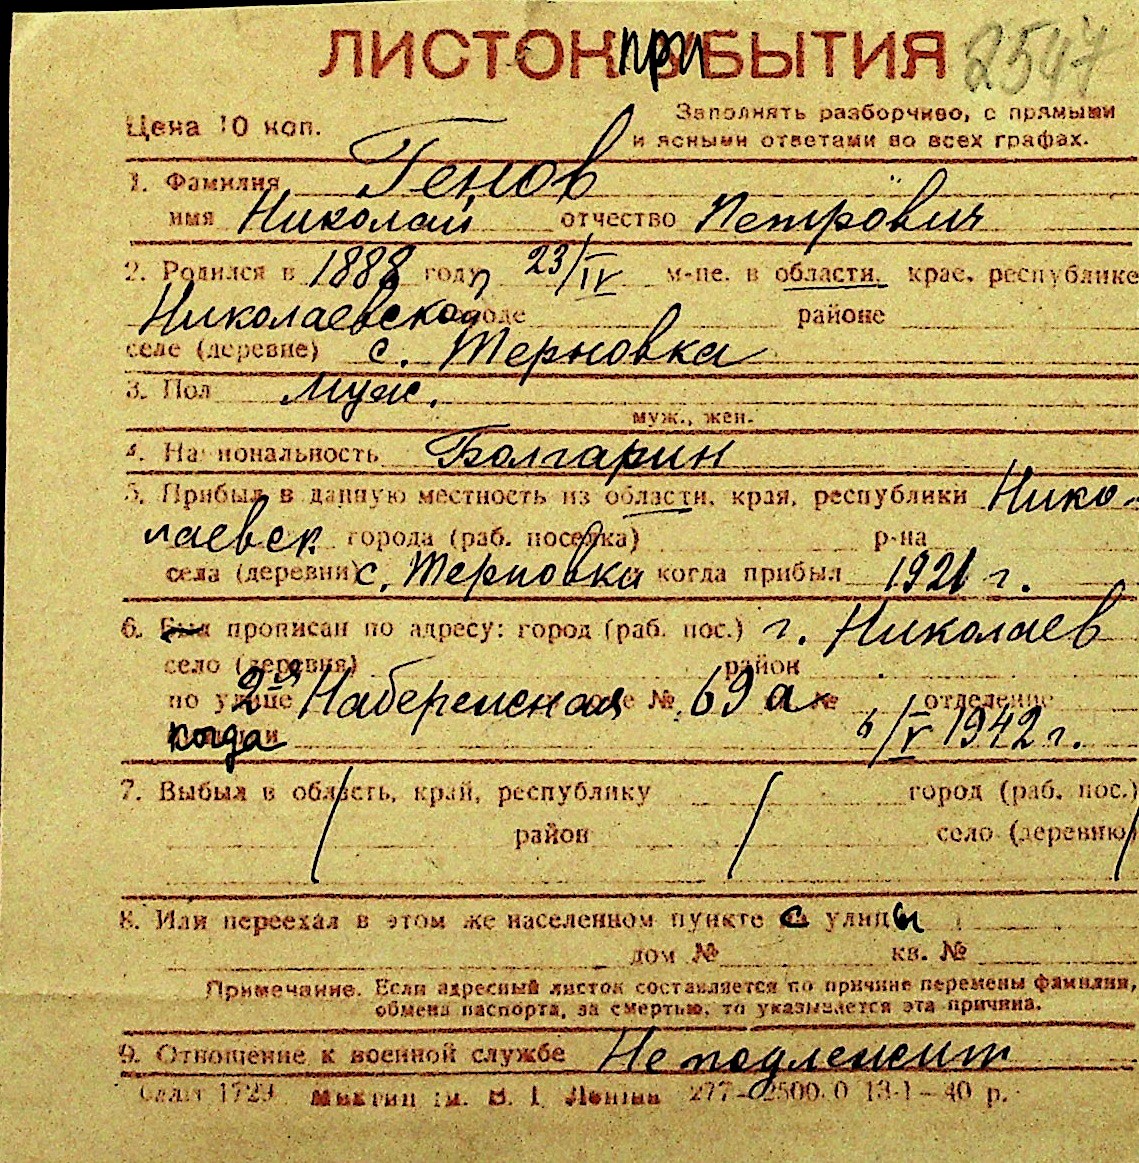 ЛИСТОК ПРИБЫТИЯ 2547
Цена 10 коп.
Заполнять разборчиво, с прямыми
и ясными ответами во всех графах.
1. Фамилия Генов
имя Николай отчество Петрович
2. Родился в 1888 году 23/IV м-це. в области, крае, республике
Николаевской городе районе
селе (деревне) с. Терновка
3. Пол Муж.
муж., жен.
4. Национальность Болгарин
5. Прибыл в данную местность из области, края, республики Нико-
лаевск. города (раб. поселка) р-на
села (деревни) с. Терновка когда прибыл 1921 г.
6. Был прописан по адресу: город (раб. пос.) г. Николаев
село (деревня) район
по улице 2-ая Набережная доме № 69 а № отделение
когда 6/V 1942 г.
7. Выбыл в область, край, республику город (раб. пос.)
район село (деревню)
8. Или переехал в этом же населенном пункте с улицы
дом № кв. №
Примечание. Если адресный листок составляется по причине перемены фамилии,
обмена паспорта, за смертью, то указывается эта причина.
9. Отношение к военной службе Не подлежит
1729 им. В. І. Леніна 277—2500.0 13-1—40 р.